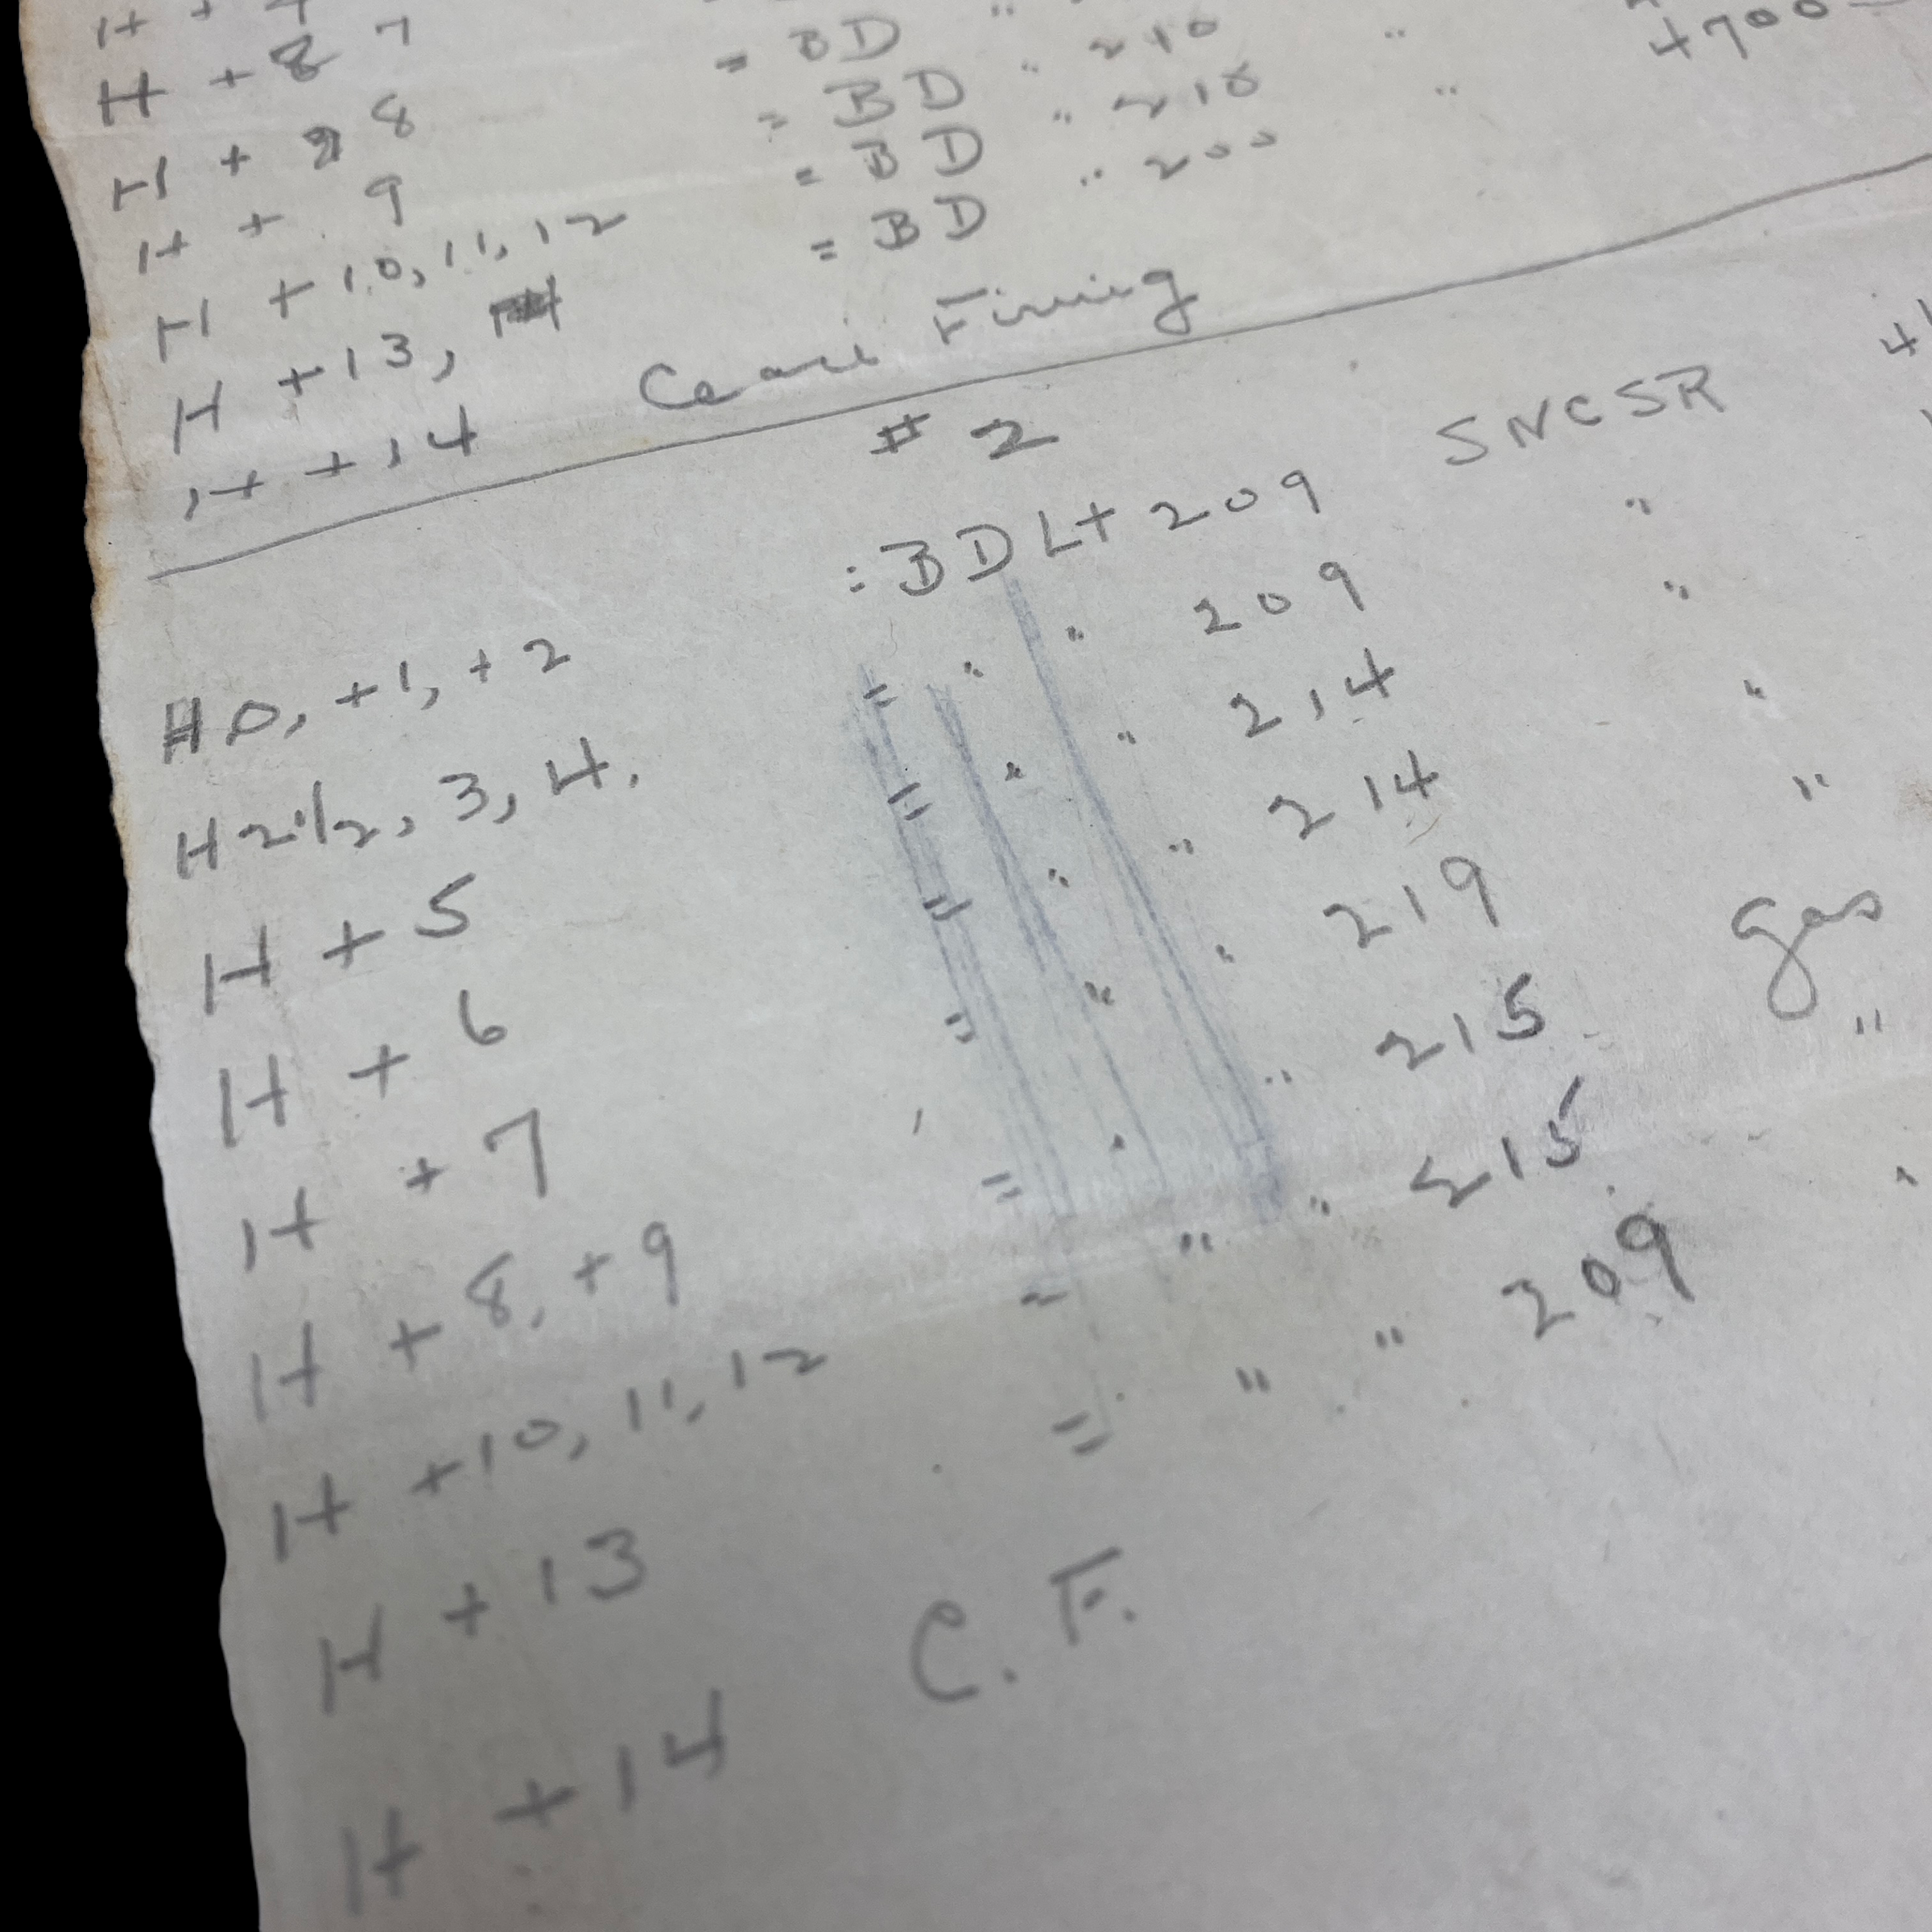 H + 8 7 = BD " 210 " 4700
H + 8 = BD " 210 "
H + 9 = BD " 200
H + 10, 11, 12 = BD
H + 13,
H + 14 Cease Firing
# 2
H 0, +1, +2 : BD Lt 209 SNCSR
H 2 1/2, 3, 4. = " " 209 "
H + 5 = " " 214 "
H + 6 = " " 214 "
H + 7 = " " 219 "
H + 8, +9 = " " 215 gas
H + 10, 11, 12 = " " 215 "
H + 13 = " " 209 "
H + 14 C. F.